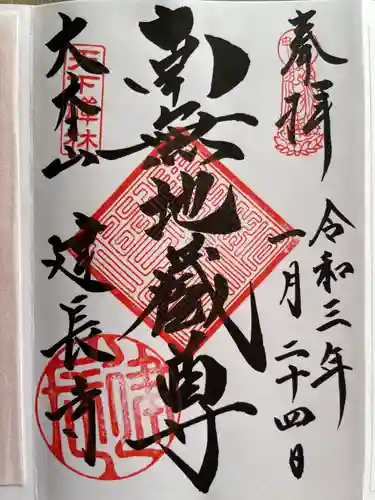 奉拝
令和三年
一月二十四日
南無地蔵尊
天下禅林
大本山
建長寺